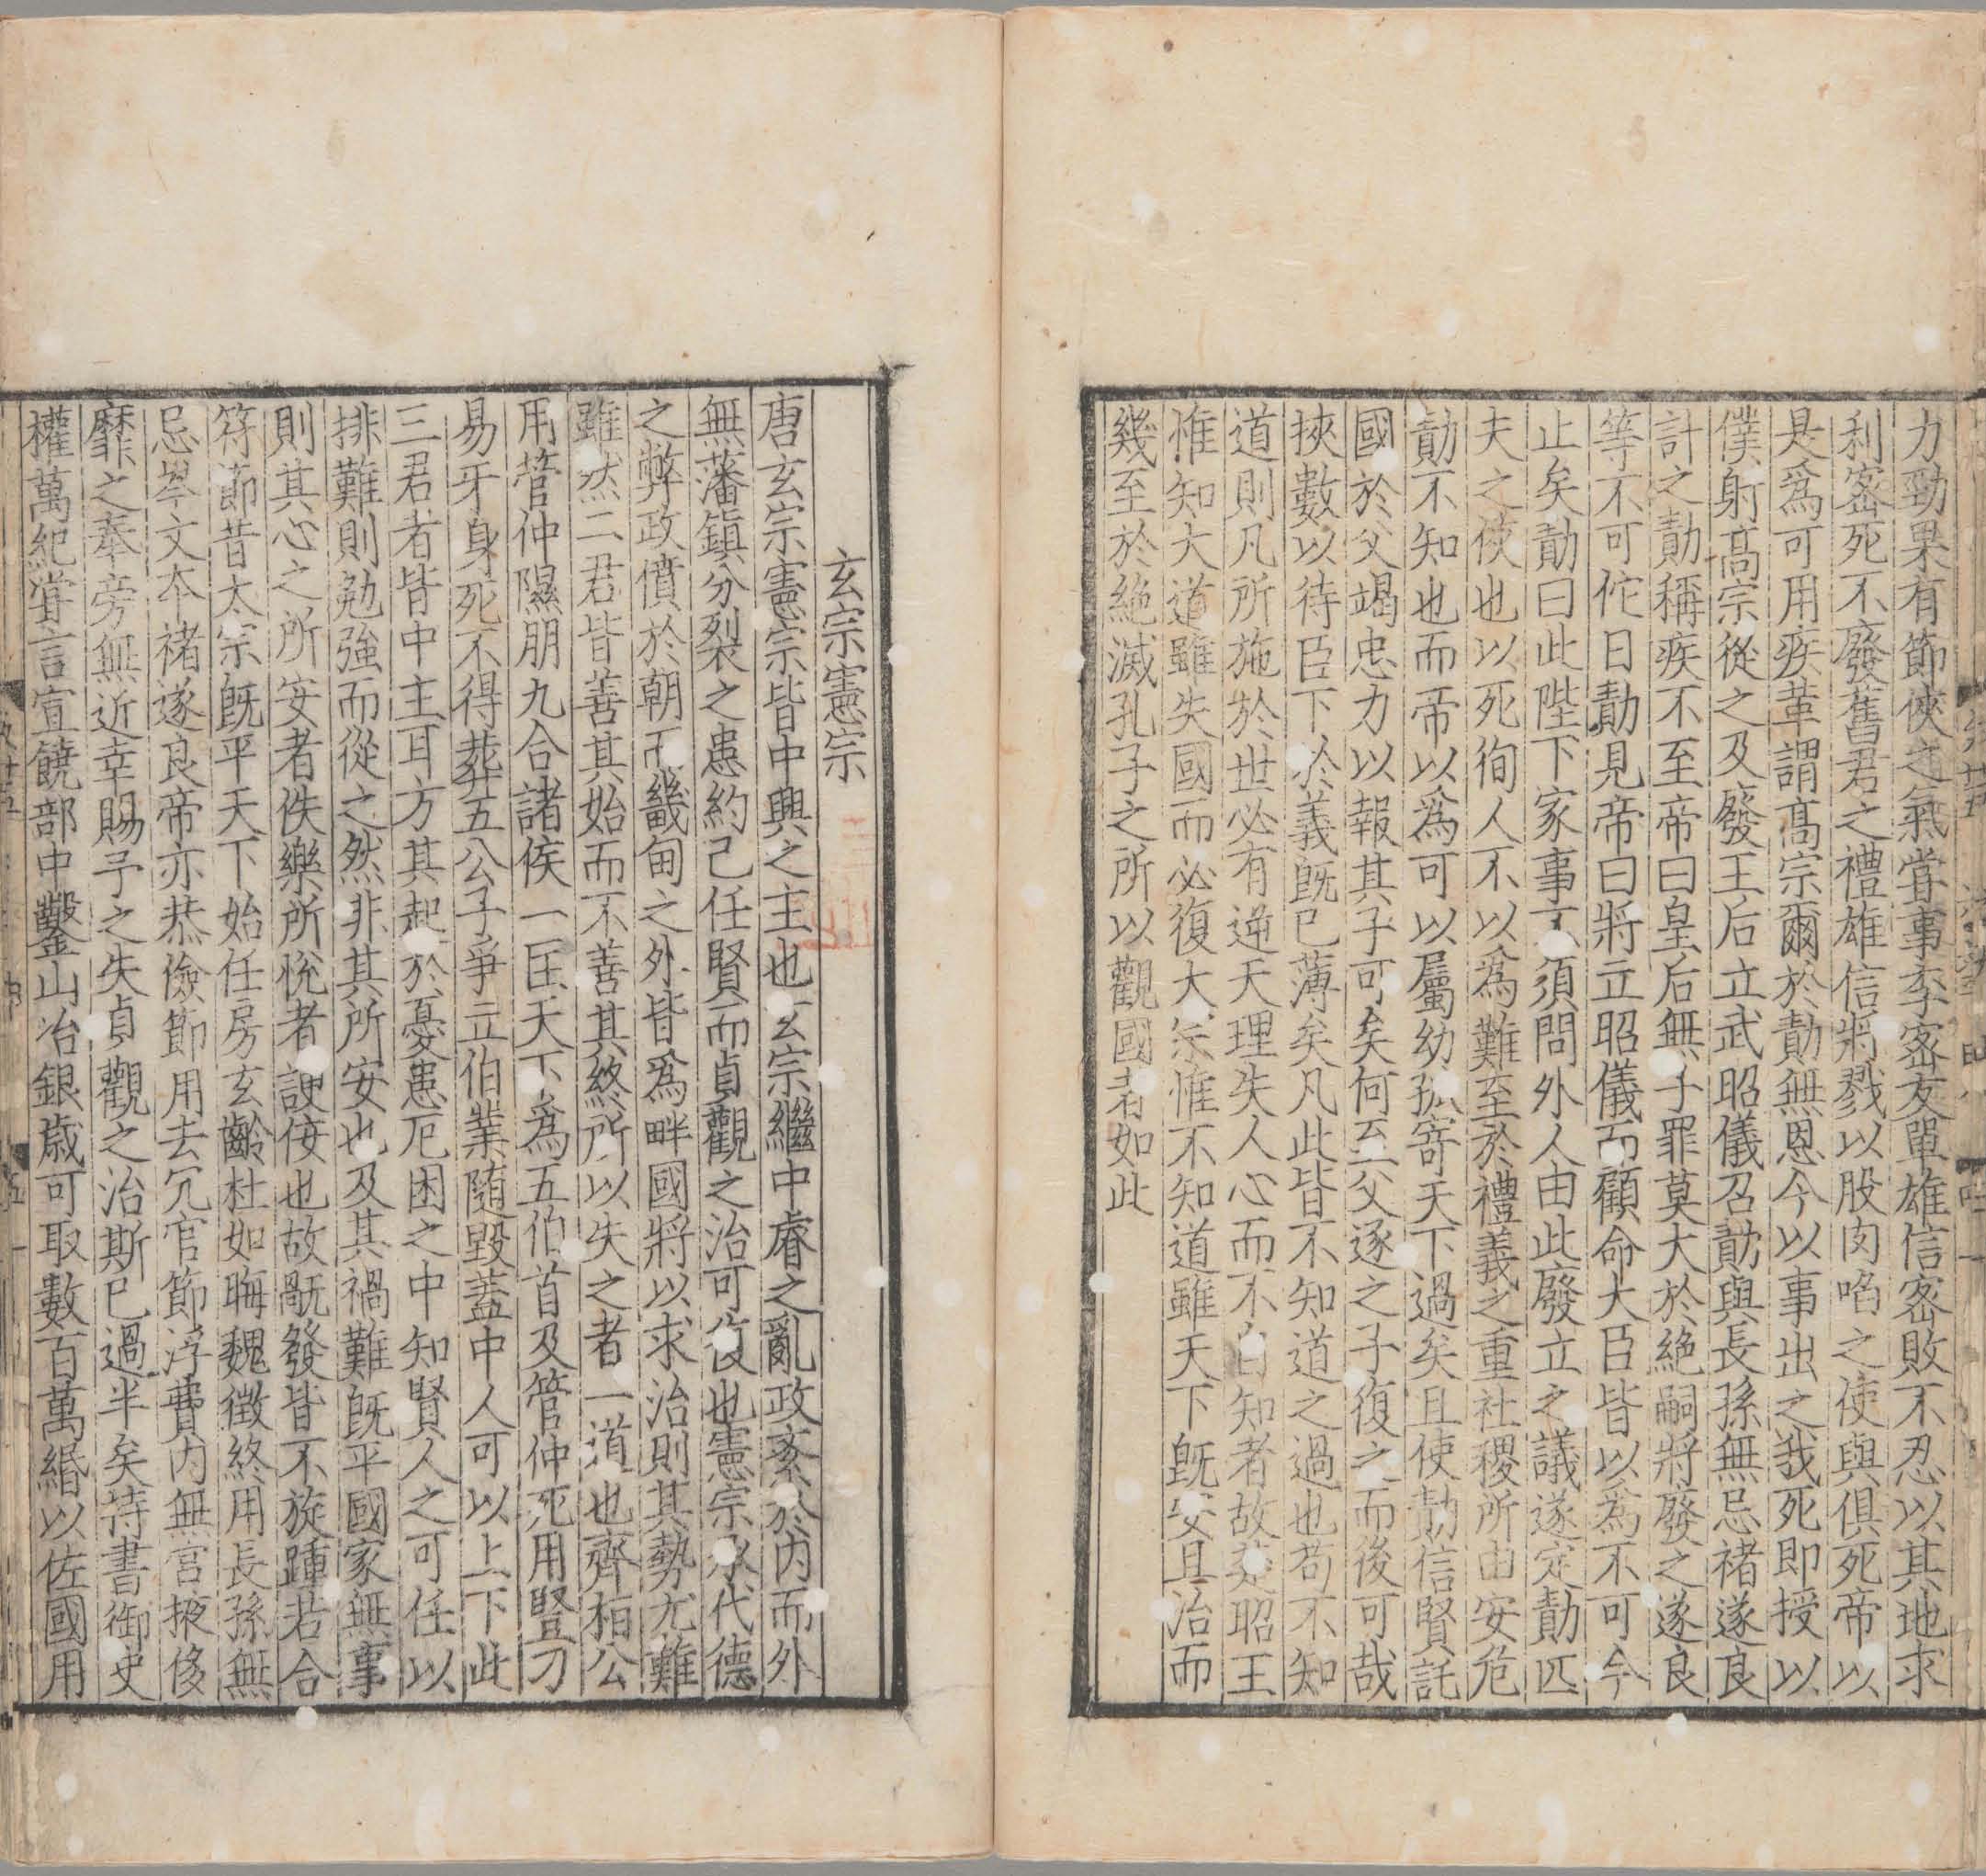 力勁果有節俠之氣嘗事李密友單雄信密敗不忍以其地求
利密死不廢舊君之禮雄信將戮以股肉啗之使與俱死帝以
是爲可用疾革謂髙宗爾於勣無恩今以事出之我死即授以
僕射髙宗從之及廢王后立武昭儀召勣與長孫無忌褚遂良
計之勣稱疾不至帝曰皇后無子罪莫大於絶嗣將廢之遂良
等不可佗日勣見帝曰將立昭儀而顧命大臣皆以為不可今
止矣勣曰此陛下家事不須問外人由此廢立之議遂定勣匹
夫之俠也以死徇人不以爲難至於禮義之重社稷所由安危
勣不知也而帝以爲可以屬幼孤寄天下過矣且使勣信賢託
國於父竭忠力以報其子可矣何至父逐之子復之而後可哉
挾數以待臣下於義既已薄矣凡此皆不知道之過也苟不知
道則凡所施於世必有逆天理失人心而不自知者故楚昭王
惟知大道雖失國而必復大宗惟不知道雖天下既安且治而
幾至於絶滅孔子之所以觀國者如此
玄宗憲宗
唐玄宗憲宗皆中興之主也玄宗繼中睿之亂政紊於内而外
無藩鎮分裂之患約己任賢而貞觀之治可復也憲宗承代德
之弊政僨於朝而畿甸之外皆爲畔國將以求治則其勢尤難
雖然二君皆善其始而不善其終所以失之者一道也齊桓公
用管仲隰朋九合諸侯一匡天下爲五伯首及管仲死用豎刁
易牙身死不得葬五公子爭立伯業隨毀蓋中人可以上下此
三君者皆中主耳方其起於憂患厄困之中知賢人之可任以
排難則勉強而從之然非其所安也及其禍難既平國家無事
則其心之所安者佚樂所悅者諛佞也故䤋發皆不旋踵若合
符節昔太宗既平天下始任房玄齡杜如晦魏徵終用長孫無
忌岑文本褚遂良帝亦恭儉節用去冗官節浮費内無宫掖侈
靡之奉旁無近幸賜予之失貞觀之治斯已過半矣待書御史
權萬紀嘗言宣饒部中鑿山冶銀歳可取數百萬緡以佐國用